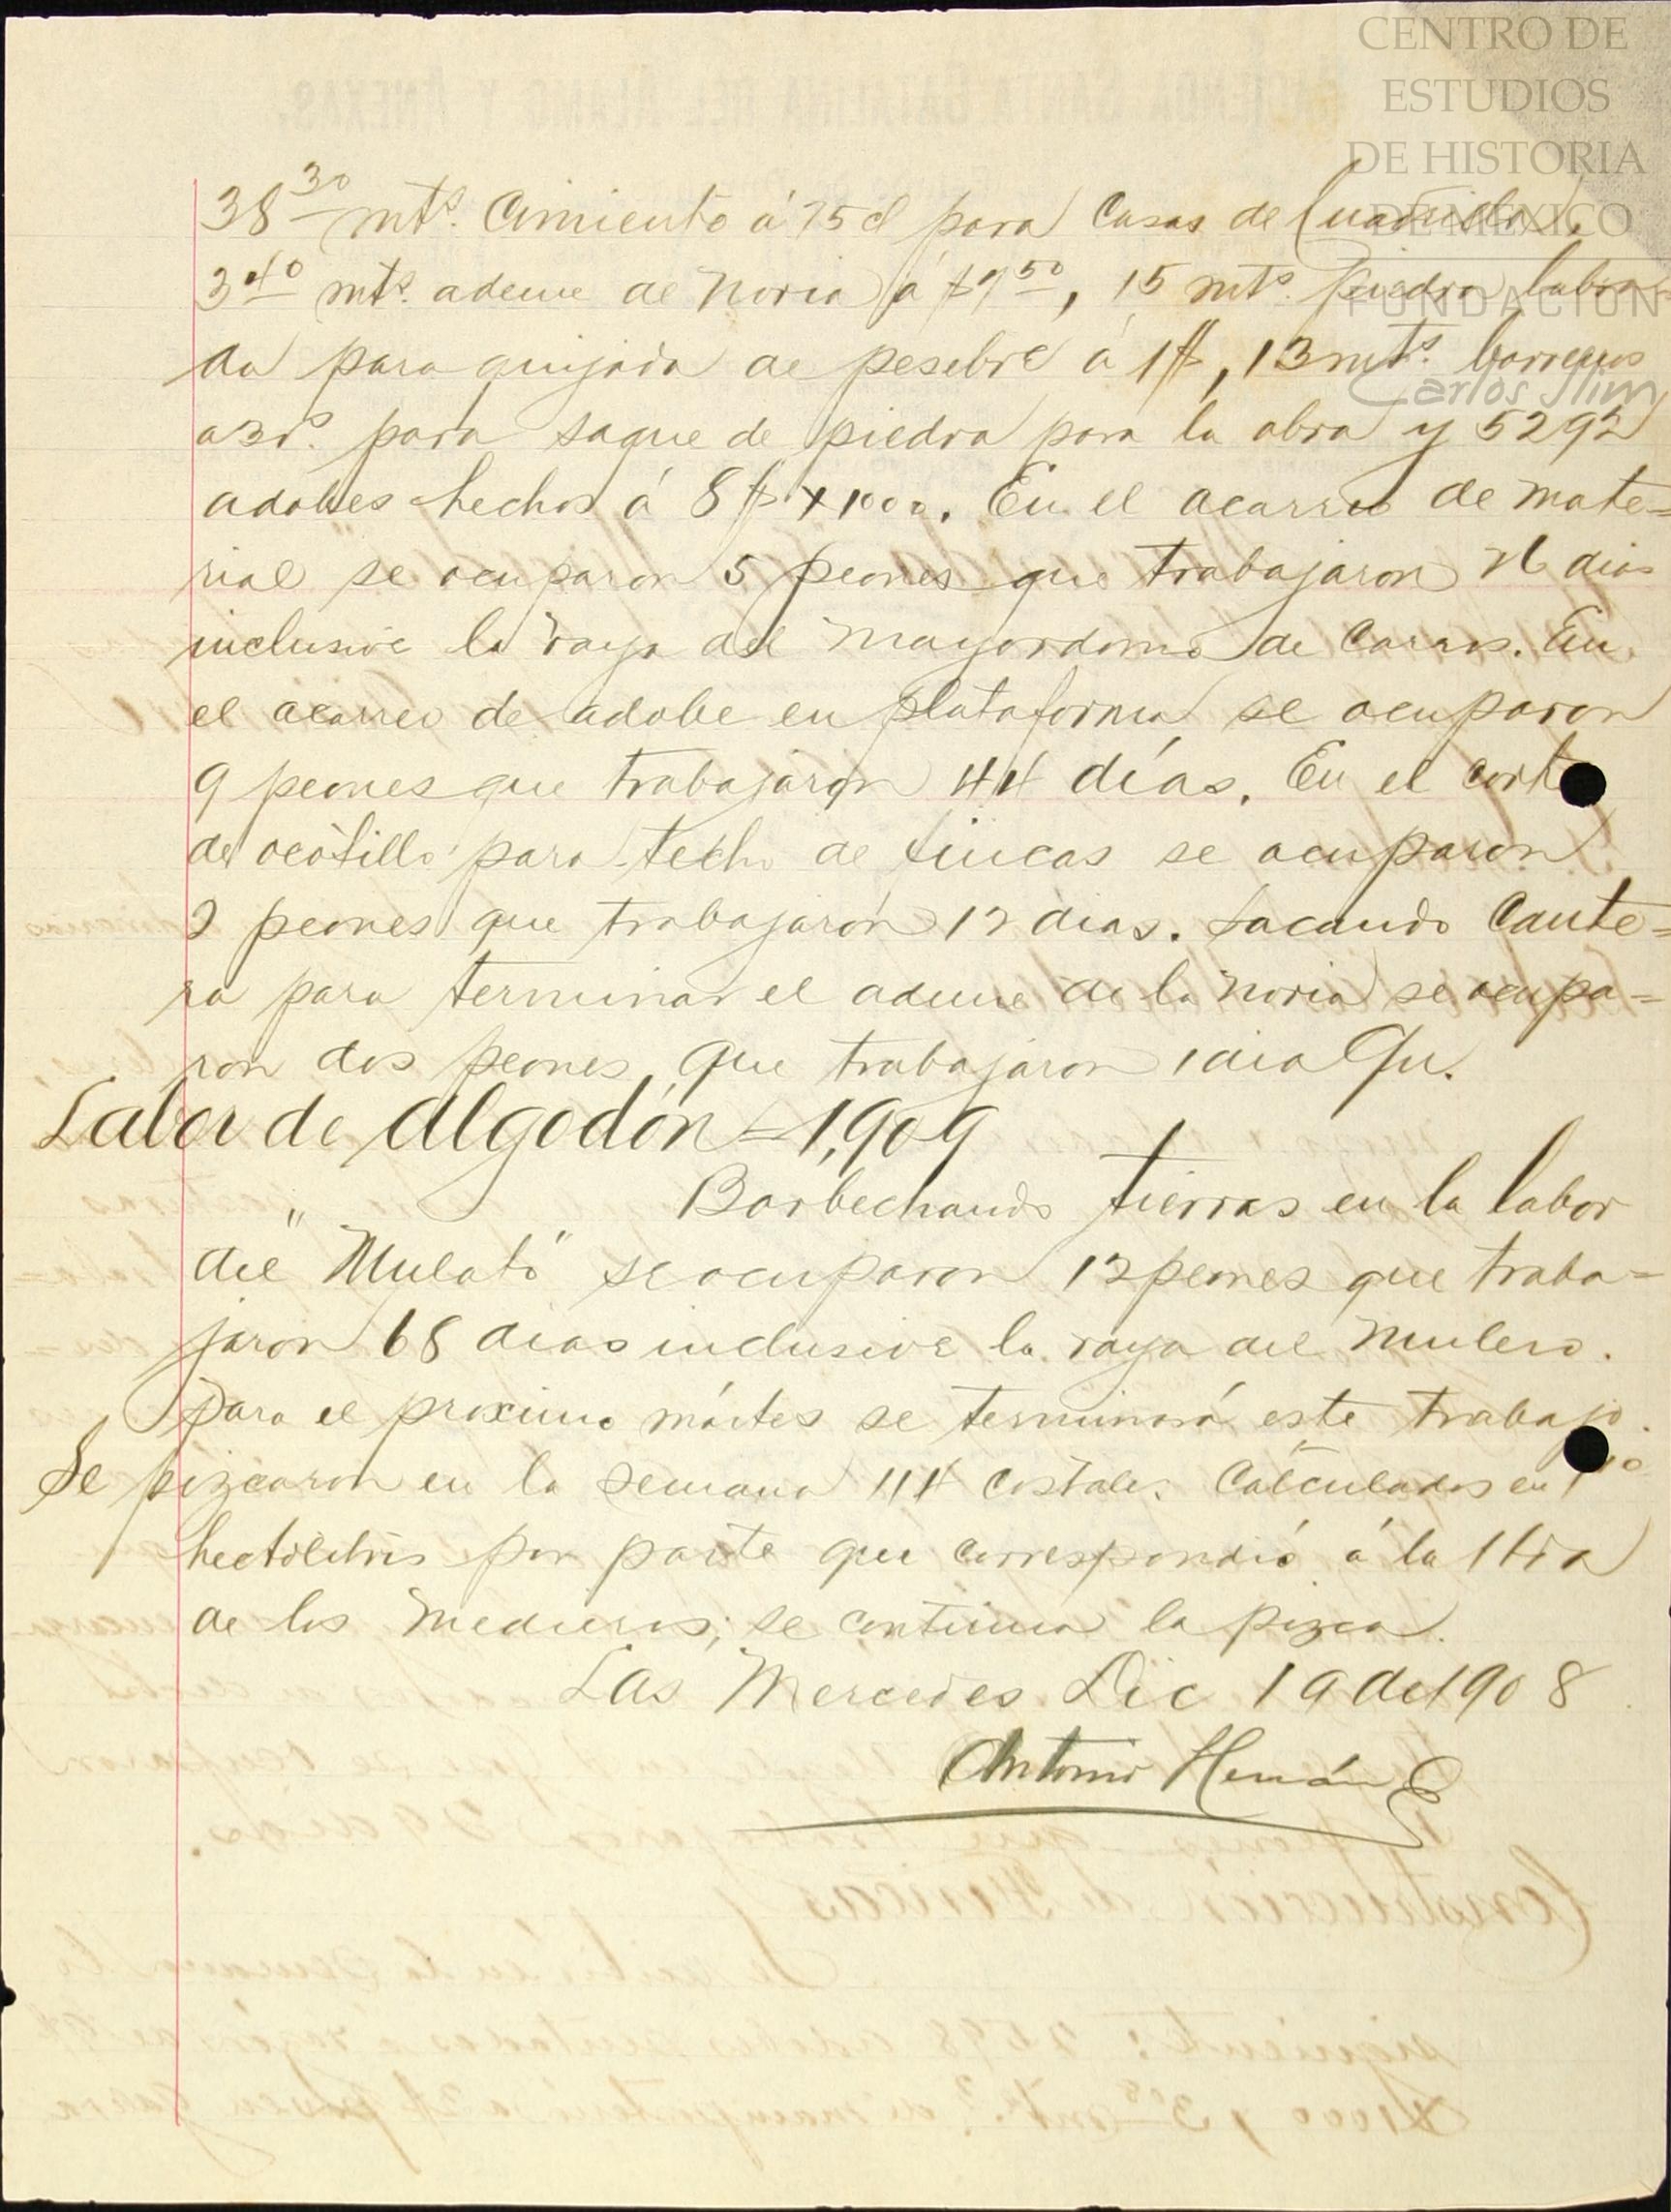 CENTRO DE
ESTUDIOS
DE HISTORIA
DE MEXICO
FUNDACION
Carlos Slim
38 30 mts. Cimiento á 75 cs para Casas de Cuadrilla,
3 40 mts. ademe de Noria á $ 50, 15 mts. piedra labra
da para quijada de pesebre á 1$, 13 mts. barrenos
a 3 rs. para saque de piedra para la obra y 5292
adobes hechos á 8 $ x 1000. En el acarreo de mate=
rial se ocuparon 5 peones que trabajaron dias
inclusive la raya del Mayordomo de Carros. En
el acarreo de adobe en plataforma se ocuparon
9 peones que trabajaron 44 días. En el corte
de ocotillo para techo de fincas se ocuparon
2 peones que trabajarón 12 dias. Sacando Cante=
ra para terminar el ademe de la noria se ocupa=
ron dos peones que trabajaron 1 dia
Labor de Algodón = 1,909
Barbechando tierras en la labor
del "Mulato" se ocuparon 12 peones que traba=
jaron 68 dias inclusive la raya del Mulero.
Para el proximo mártes se terminará este trabajo.
Se pizcaron en la semana 114 costales Calculados en
hectólitros por parte que correspondió á la Hda
de los Medieros; se continua la pizca.
Las Mercedes Dic 19 de 1908
Antonio Hernán